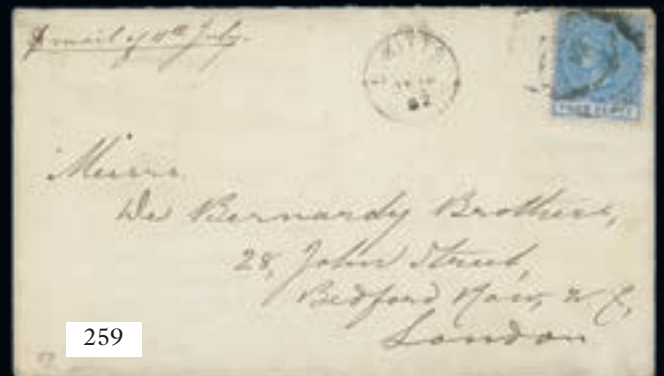 p mail of 11th July.
KITTS
82
FOUR PENCE
Messrs
De Bernardy Brothers,
28, John Street,
Bedford Row, W C,
London
259